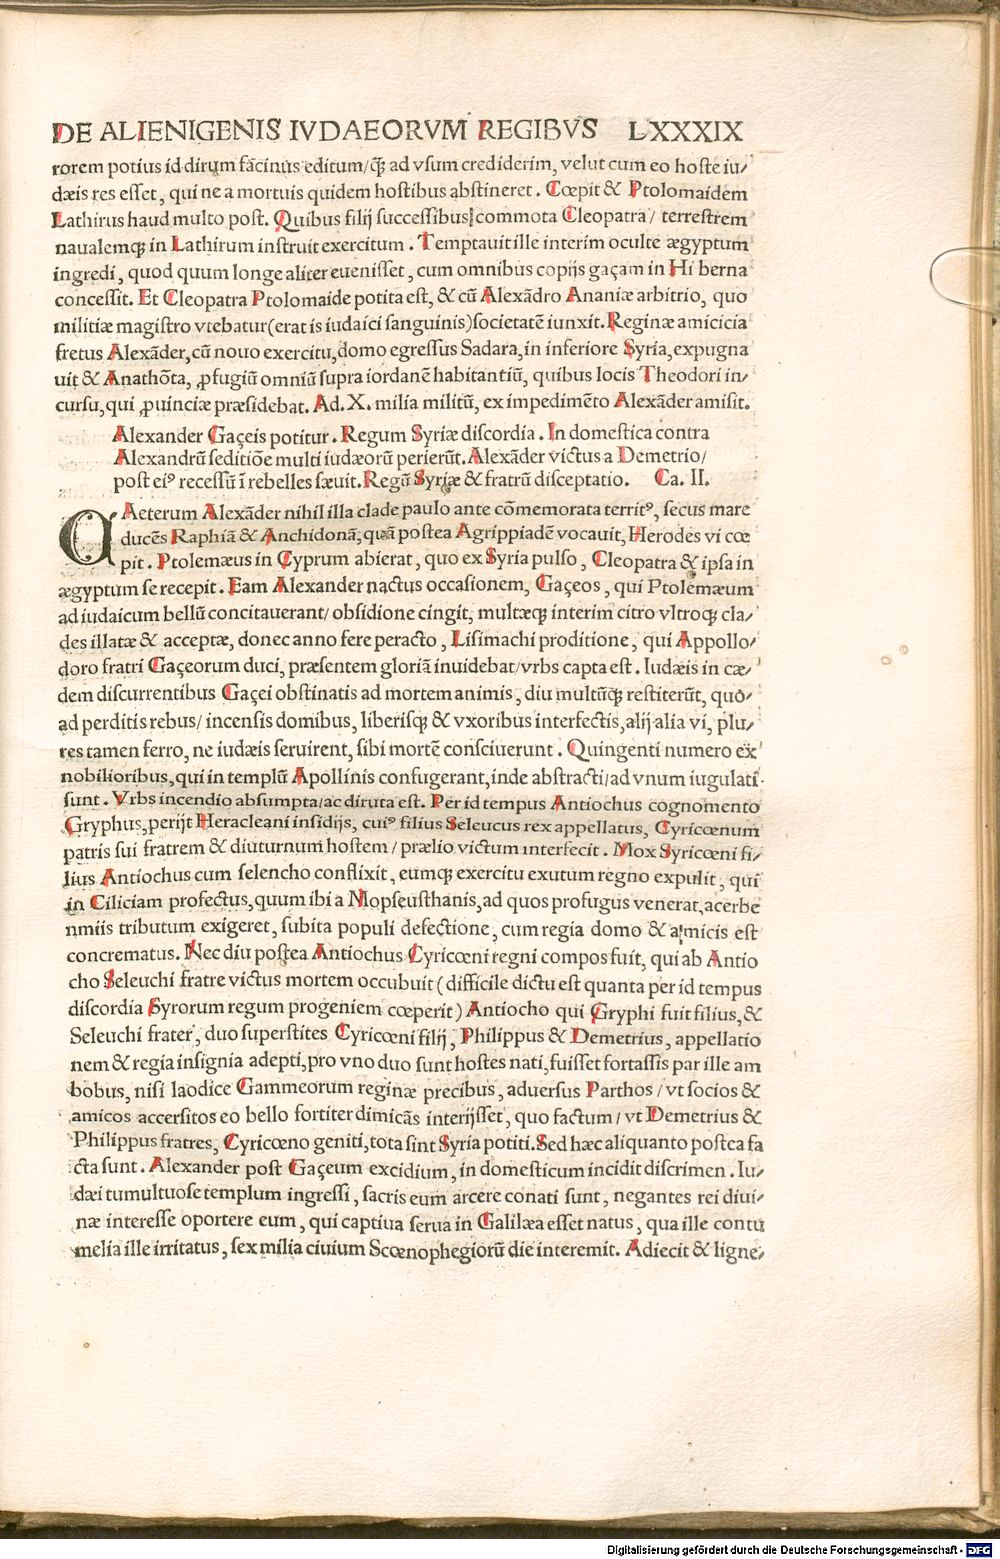 DE ALIENIGENIS IVDAEORVM REGIBVS LXXXIX
rorem potius id dirum facinus editum/ꝙ̃ ad vsum crediderim, velut cum eo hoste iu⸗
dæis res esset, qui ne a mortuis quidem hostibus abstineret. Cœpit & Ptolomaidem
Lathirus haud multo post. Quibus filij successibus commota Cleopatra/ terrestrem
naualemqꝫ in Lathirum instruit exercitum. Temptauit ille interim oculte ægyptum
ingredi, quod quum longe aliter euenisset, cum omnibus copijs gaçam in Hi berna
concessit. Et Cleopatra Ptolomaide potita est, & cũ Alexãdro Ananiæ arbitrio, quo
militiæ magistro vtebatur(erat is iudaici sanguinis)societatẽ iunxit. Reginæ amicicia
fretus Alexãder, cũ nouo exercitu, domo egressus Sadara, in inferiore Syria, expugna
uit & Anathõta, ꝓfugiũ omniũ supra iordanẽ habitantiũ, quibus locis Theodori in⸗
cursu, qui ꝓuinciæ præsidebat. Ad. X. milia militũ, ex impedimẽto Alexãder amisit.
Alexander Gaçeis potitur. Regum Syriæ discordia. In domestica contra
Alexandrũ seditiõe multi iudæorũ perierũt. Alexãder victus a Demetrio/
post eiꝰ recessũ ĩ rebelles sæuit. Regũ Syriæ & fratrũ disceptatio. Ca. II.
CAeterum Alexãder nihil illa clade paulo ante cõmemorata territꝰ, secus mare
ducẽs Raphiã & Anchidonã, quã postea Agrippiadẽ vocauit, Herodes vi cœ
pit. Ptolemæus in Cyprum abierat, quo ex Syria pulso, Cleopatra & ipsa in
ægyptum se recepit. Eam Alexander nactus occasionem, Gaçeos, qui Ptolemæum
ad iudaicum bellũ concitauerant/ obsidione cingit, multæqꝫ interim citro vltroqꝫ cla⸗
des illatæ & acceptæ, donec anno fere peracto, Lisimachi proditione, qui Appollo⸗
doro fratri Gaçeorum duci, præsentem gloriã inuidebat/vrbs capta est. Iudæis in cæ⸗
dem discurrentibus Gaçei obstinatis ad mortem animis, diu multũqꝫ restiterũt, quo⸗
ad perditis rebus/ incensis domibus, liberisqꝫ & vxoribus interfectis, alij alia vi, plu⸗
res tamen ferro, ne iudæis seruirent, sibi mortẽ consciuerunt. Quingenti numero ex
nobilioribus, qui in templũ Apollinis confugerant, inde abstracti/ad vnum iugulati
sunt. Vrbs incendio absumpta/ac diruta est. Per id tempus Antiochus cognomento
Gryphus, perijt Heracleani insidijs, cuiꝰ filius Seleucus rex appellatus, Cyricœnum
patris sui fratrem & diuturnum hostem/ prælio victum interfecit. Mox Syricœni fi⸗
lius Antiochus cum selencho conflixit, eumqꝫ exercitu exutum regno expulit, qui
in Ciliciam profectus, quum ibi a Mopseusthanis, ad quos profugus venerat, acerbe
nmiis tributum exigeret, subita populi defectione, cum regia domo & amicis est
concrematus. Nec diu postea Antiochus Cyricœni regni compos fuit, qui ab Antio
cho Seleuchi fratre victus mortem occubuit(difficile dictu est quanta per id tempus
discordia Syrorum regum progeniem cœperit) Antiocho qui Gryphi fuit filius, &
Seleuchi frater, duo superstites Cyricœni filij, Philippus & Demetrius, appellatio
nem & regia insignia adepti, pro vno duo sunt hostes nati, fuisset fortassis par ille am
bobus, nisi laodice Gammeorum reginæ precibus, aduersus Parthos/vt socios &
amicos accersitos eo bello fortiter dimicãs interijsset, quo factum/ vt Demetrius &
Philippus fratres, Cyricœno geniti, tota sint Syria potiti. Sed hæc aliquanto postea fa
cta sunt. Alexander post Gaçeum excidium, in domesticum incidit discrimen. Iu⸗
dæi tumultuose templum ingressi, sacris eum arcere conati sunt, negantes rei diui⸗
næ interesse oportere eum, qui captiua serua in Galilæa esset natus, qua ille contu
melia ille irritatus, sex milia ciuium Scœnophegiorũ die interemit. Adiecit & ligne⸗
Digitalisierung gefördert durch die Deutsche Forschungsgemeinschaft - DFG